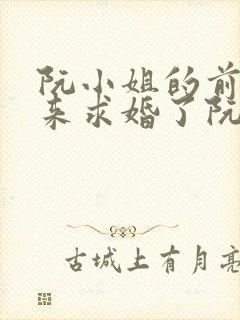 阮小姐的前
来求婚了阮
古城上有月亮